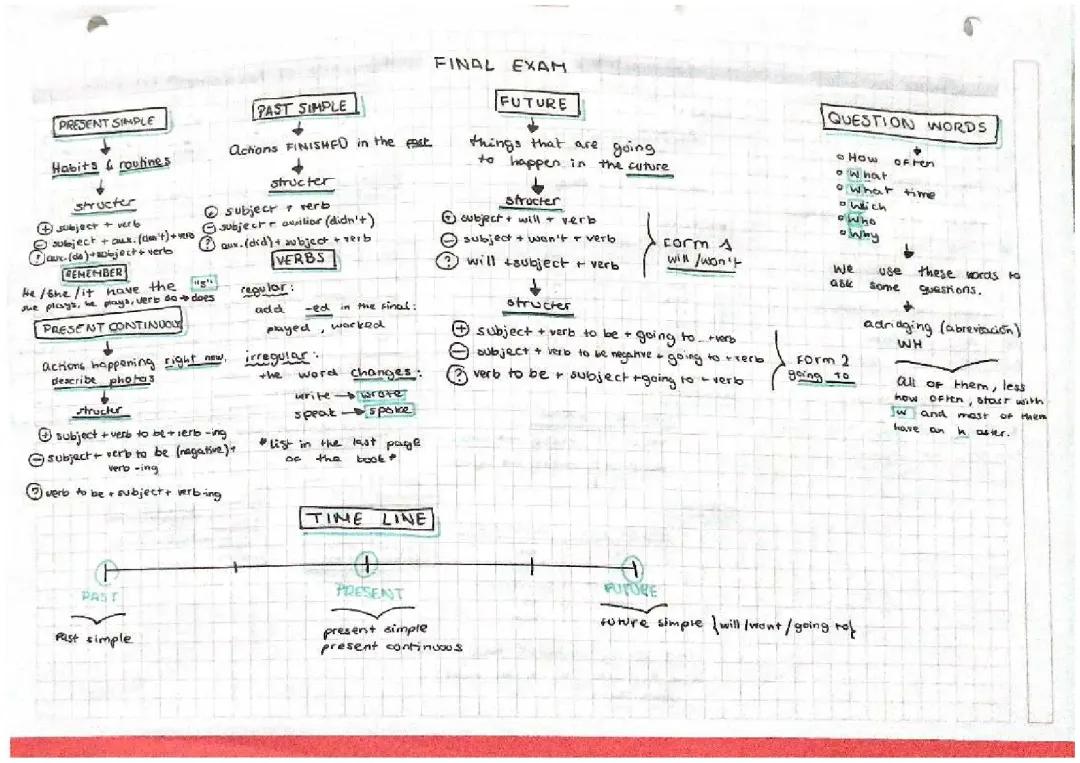 FINAL EXAM
PRESENT SIMPLE
Habits & routines
structer
+ subject + verb
- subject + aux. (don't) + verb
? aux. (do) + subject + verb
REMEMBER
he/she/it have the "s"
she plays, he plays, verb do → does
PRESENT CONTINUOUS
actions happening right now.
describe photos
structer
+ subject + verb to be + verb -ing
- subject + verb to be (negative) +
verb -ing
? verb to be + subject + verb-ing
PAST SIMPLE
Actions FINISHED in the past
structer
+ subject + verb
- subject + auxiliar (didn't)
? aux. (did) + subject + verb
VERBS
regular:
add -ed in the final:
played, worked
irregular:
the word changes:
write → wrote
speak → spoke
*list in the last page
of the book*
FUTURE
things that are going
to happen in the future
structer
+ subject + will + verb
- subject + won't + verb
? will + subject + verb
form 1
will/won't
structer
+ subject + verb to be + going to + verb
- subject + verb to be negative + going to + verb
? verb to be + subject + going to + verb
form 2
going to
QUESTION WORDS
How often
What
What time
Which
Who
Why
We use these words to
ask some questions.
adridging (abreviación)
WH
all of them, less
how often, start with
w and most of them
have an h after.
TIME LINE
PAST
PRESENT
FUTURE
Past simple
present simple
present continuous
future simple {will/wont/going to}